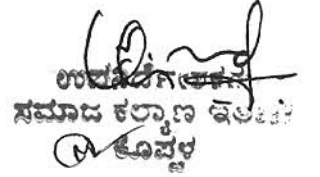 ಉಪನಿರ್ದೇಶಕರು
ಸಮಾಜ ಕಲ್ಯಾಣ ಇಲಾಖೆ
ಕೊಪ್ಪಳ